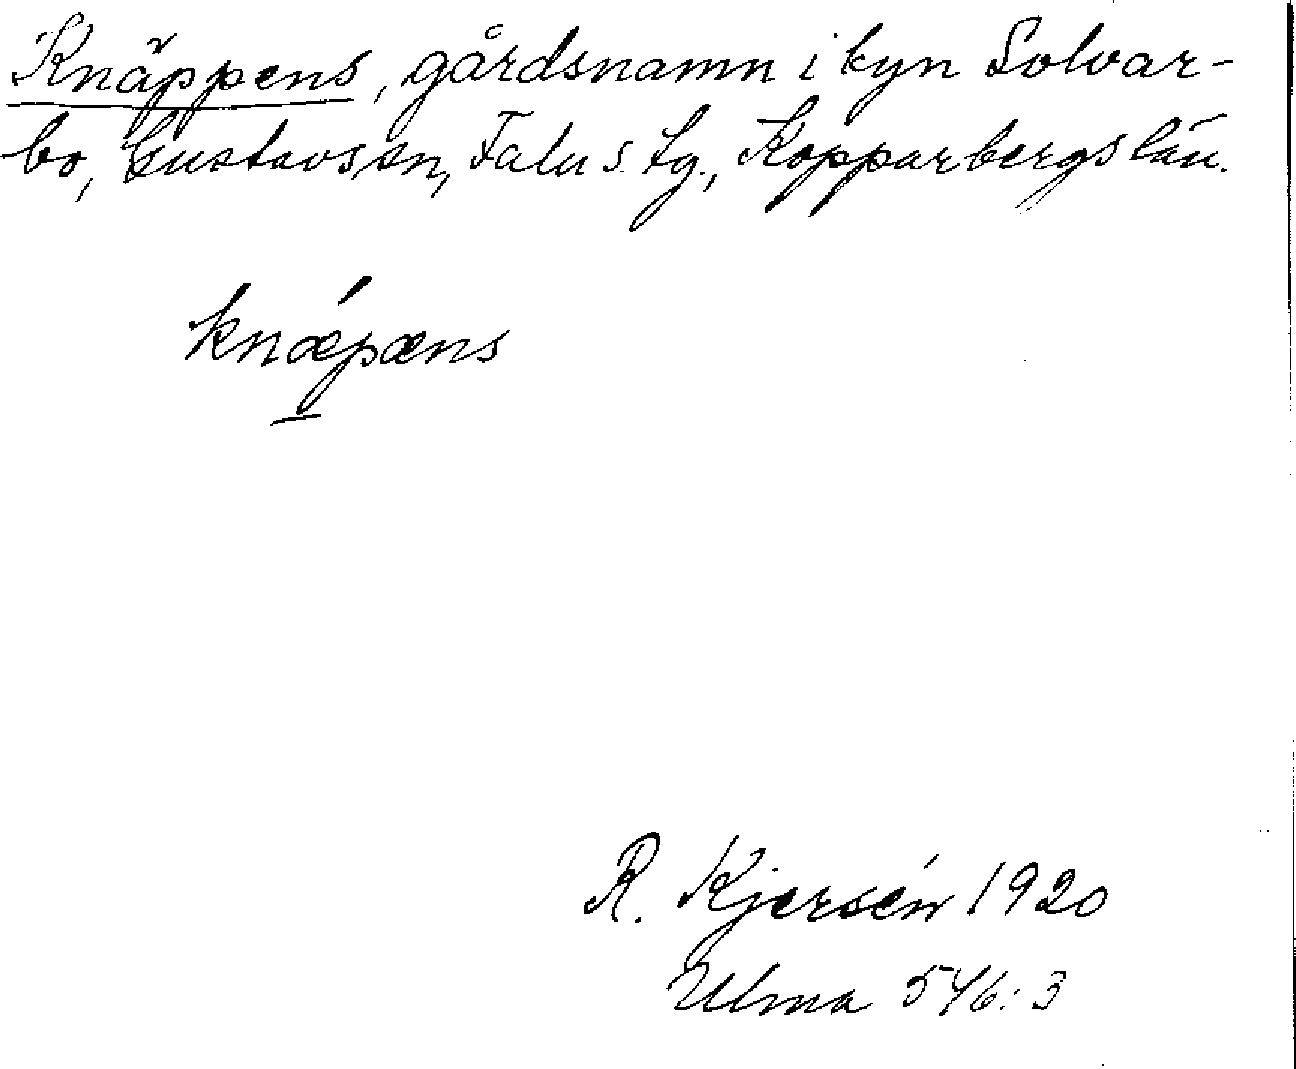 Knäppens, gårdsnamn i byn Solvar-
bo, Gustavs sn, Falu s. tg., Kopparbergs län.
knǽpæns
R. Kjersén 1920
Ulma 546:3